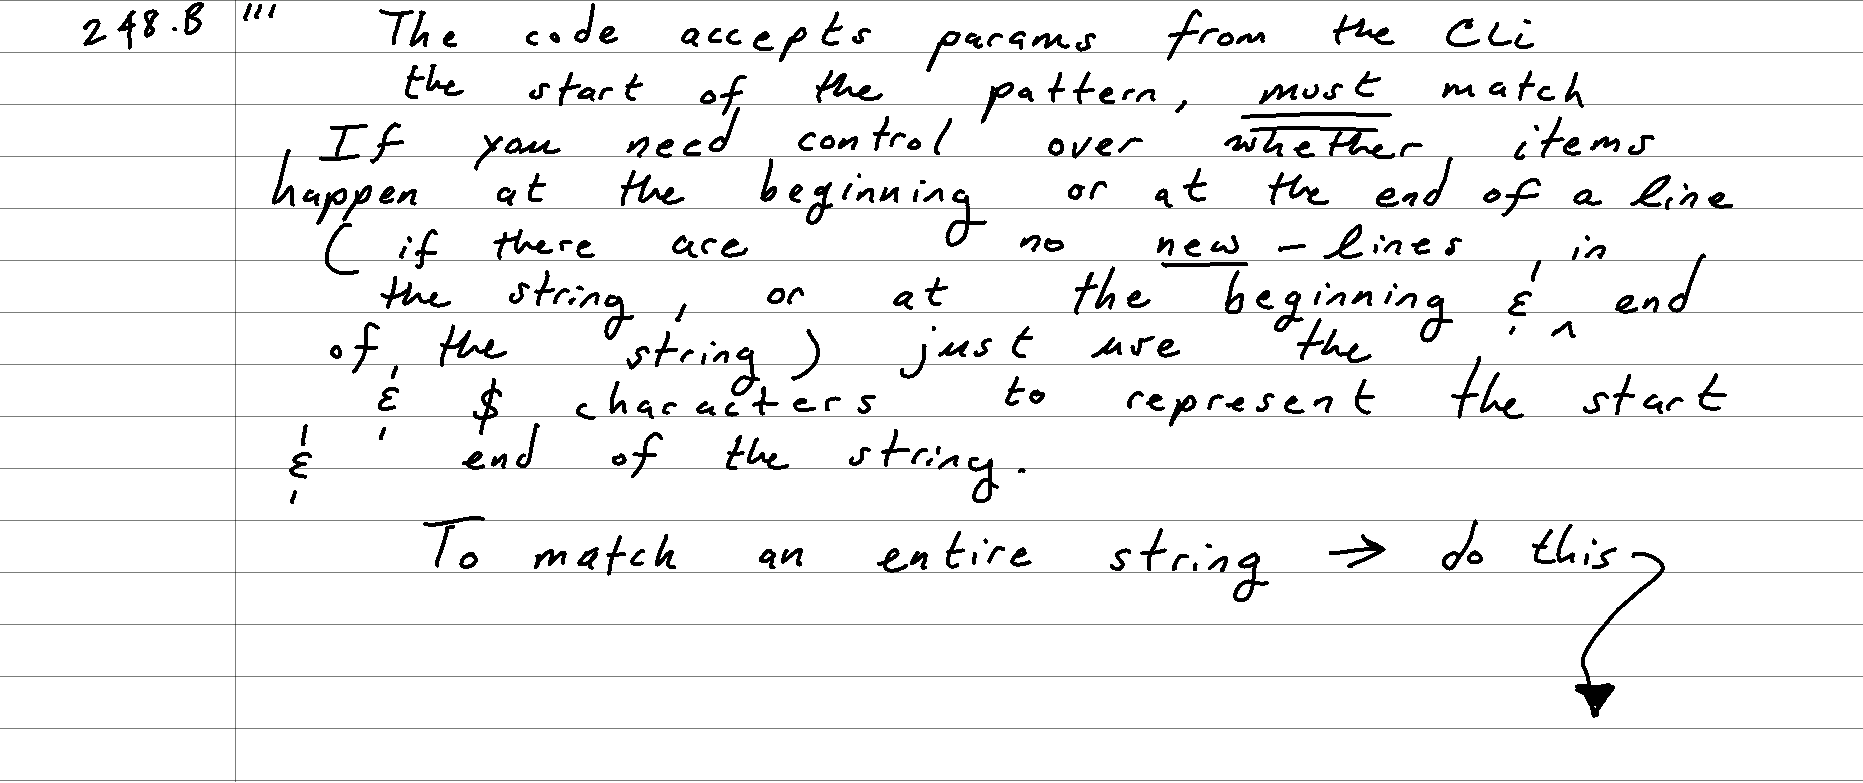 248.B ''' The code accepts params from the CLi
the start of the pattern, must match
If you need control over whether items
happen at the beginning or at the end of a line
( if there are no new - lines in
the string, or at the beginning & end
of the string ) just use the ^
& $ characters to represent the start
& end of the string.
To match an entire string → do this